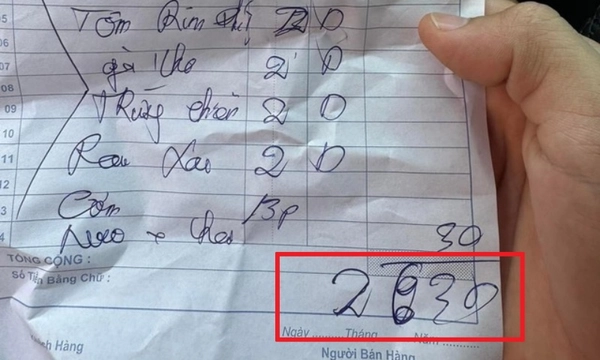 05 Tôm Rim D
06
07 gà kho 2 D
08
09 Trứng chiên 2 D
10
11 Rau Xào 2 D
12
3 Cơm 13p
4 30
TỔNG CỘNG :
Số Tiền Bằng Chữ : 2630
Ngày ........... Tháng ........... Năm ...........
Người Bán Hàng
Hàng